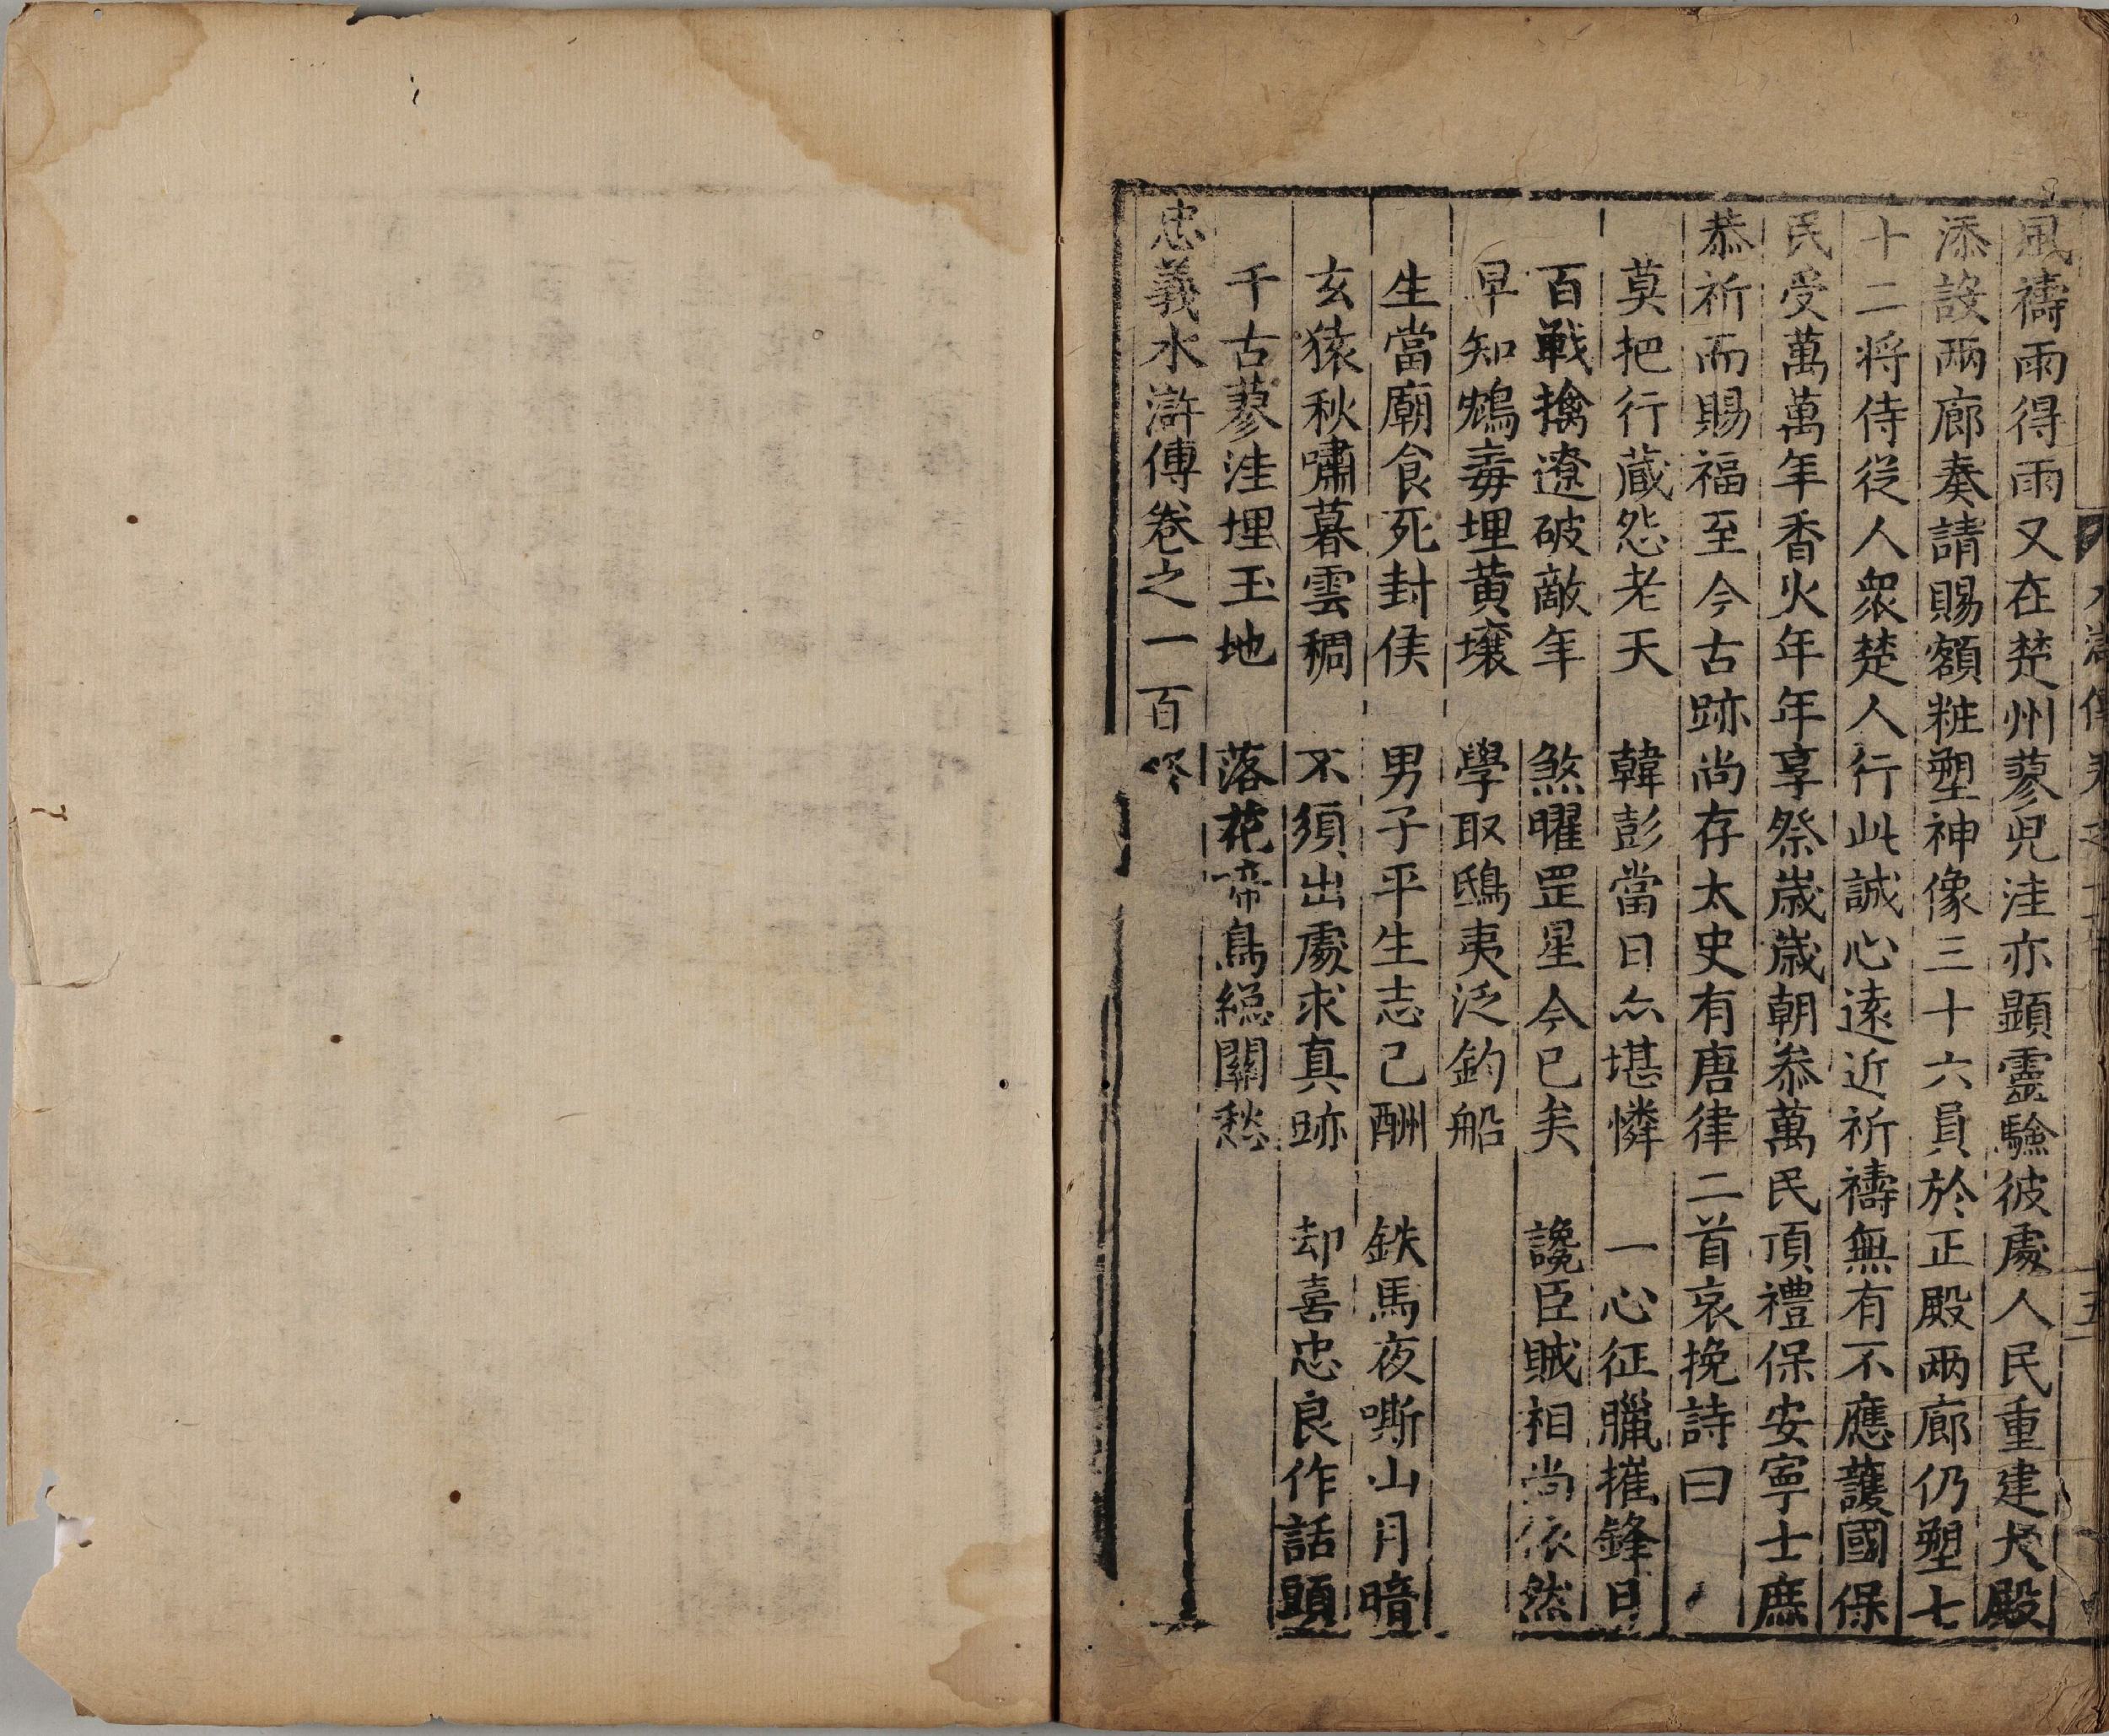 風禱雨得雨又在楚州蓼兒洼亦顯靈驗彼處人民重建大殿
添設兩廊奏請賜額粧塑神像三十六員於正殿兩廊仍塑七
十二將侍從人衆楚人行此誠心遠近祈禱無有不應護國保
民受萬萬年香火年年享祭歲歲朝叅萬民頂禮保安寧士庶
恭祈而賜福至今古跡尚存太史有唐律二首哀挽詩曰
莫把行藏怨老天　韓彭當日亦堪憐　一心征臘摧鋒日
百戰擒遼破敵年　煞曜罡星今已矣　讒臣賊相尚依然
早知鴆毒埋黄壤　學取鴟夷泛釣船
生當廟食死封侯　男子平生志已酬　鉄馬夜嘶山月暗
玄猿秋嘯暮雲稠　不須出處求真跡　却喜忠良作話頭
千古蓼洼埋玉地　落花啼鳥緫關愁
忠義水滸傳卷之一百終